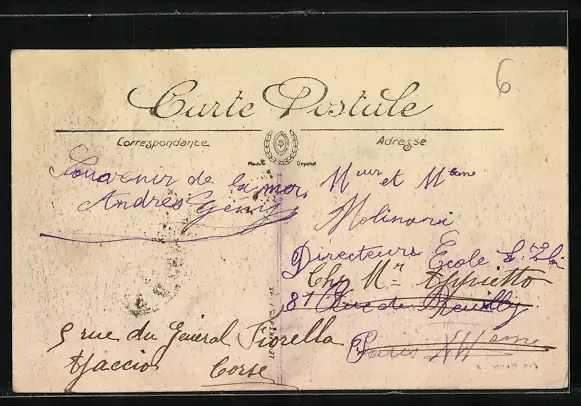 6
Carte Postale
Correspondance
Adresse
Modèle Déposé
Souvenir de la mer.
Andrès Gény
Mr et Mme
Molinari
Directeurs Ecole
Chez Mr Appietto
81 Rue de Reuilly
Paris XII eme
5 rue du Général Fiorella
Ajaccio
Corse